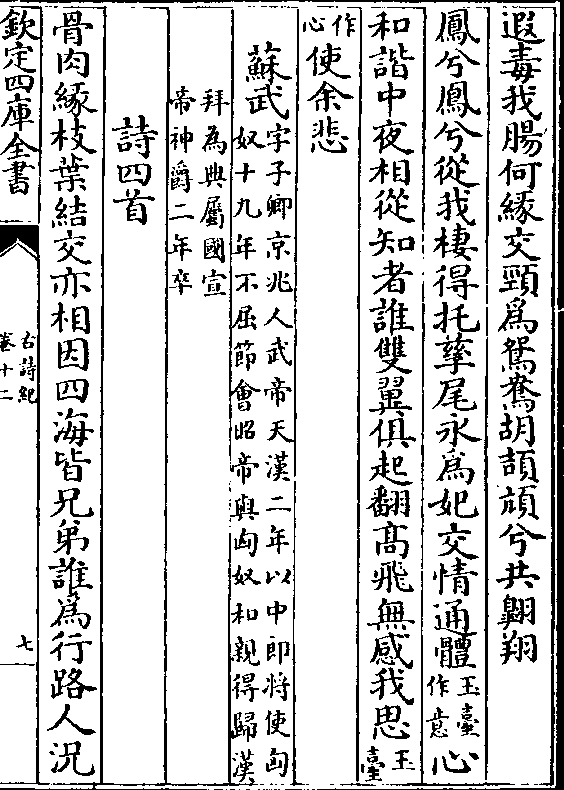 遐毒我腸何縁交頸爲鴛鴦胡頡頏兮共翺翔
鳳兮鳳兮從我棲得托孳尾永爲妃交情通體玉臺作意心
和諧中夜相從知者誰雙翼俱起翻髙飛無感我思玉臺
作心使余悲
蘇武字子卿京兆人武帝天漢二年以中郎將使匈
奴十九年不屈節會昭帝與匈奴和親得歸漢
拜為典屬國宣
帝神爵二年卒
詩四首
骨肉縁枝葉結交亦相因四海皆兄弟誰爲行路人況
欽定四庫全書
古詩紀
卷十二
七